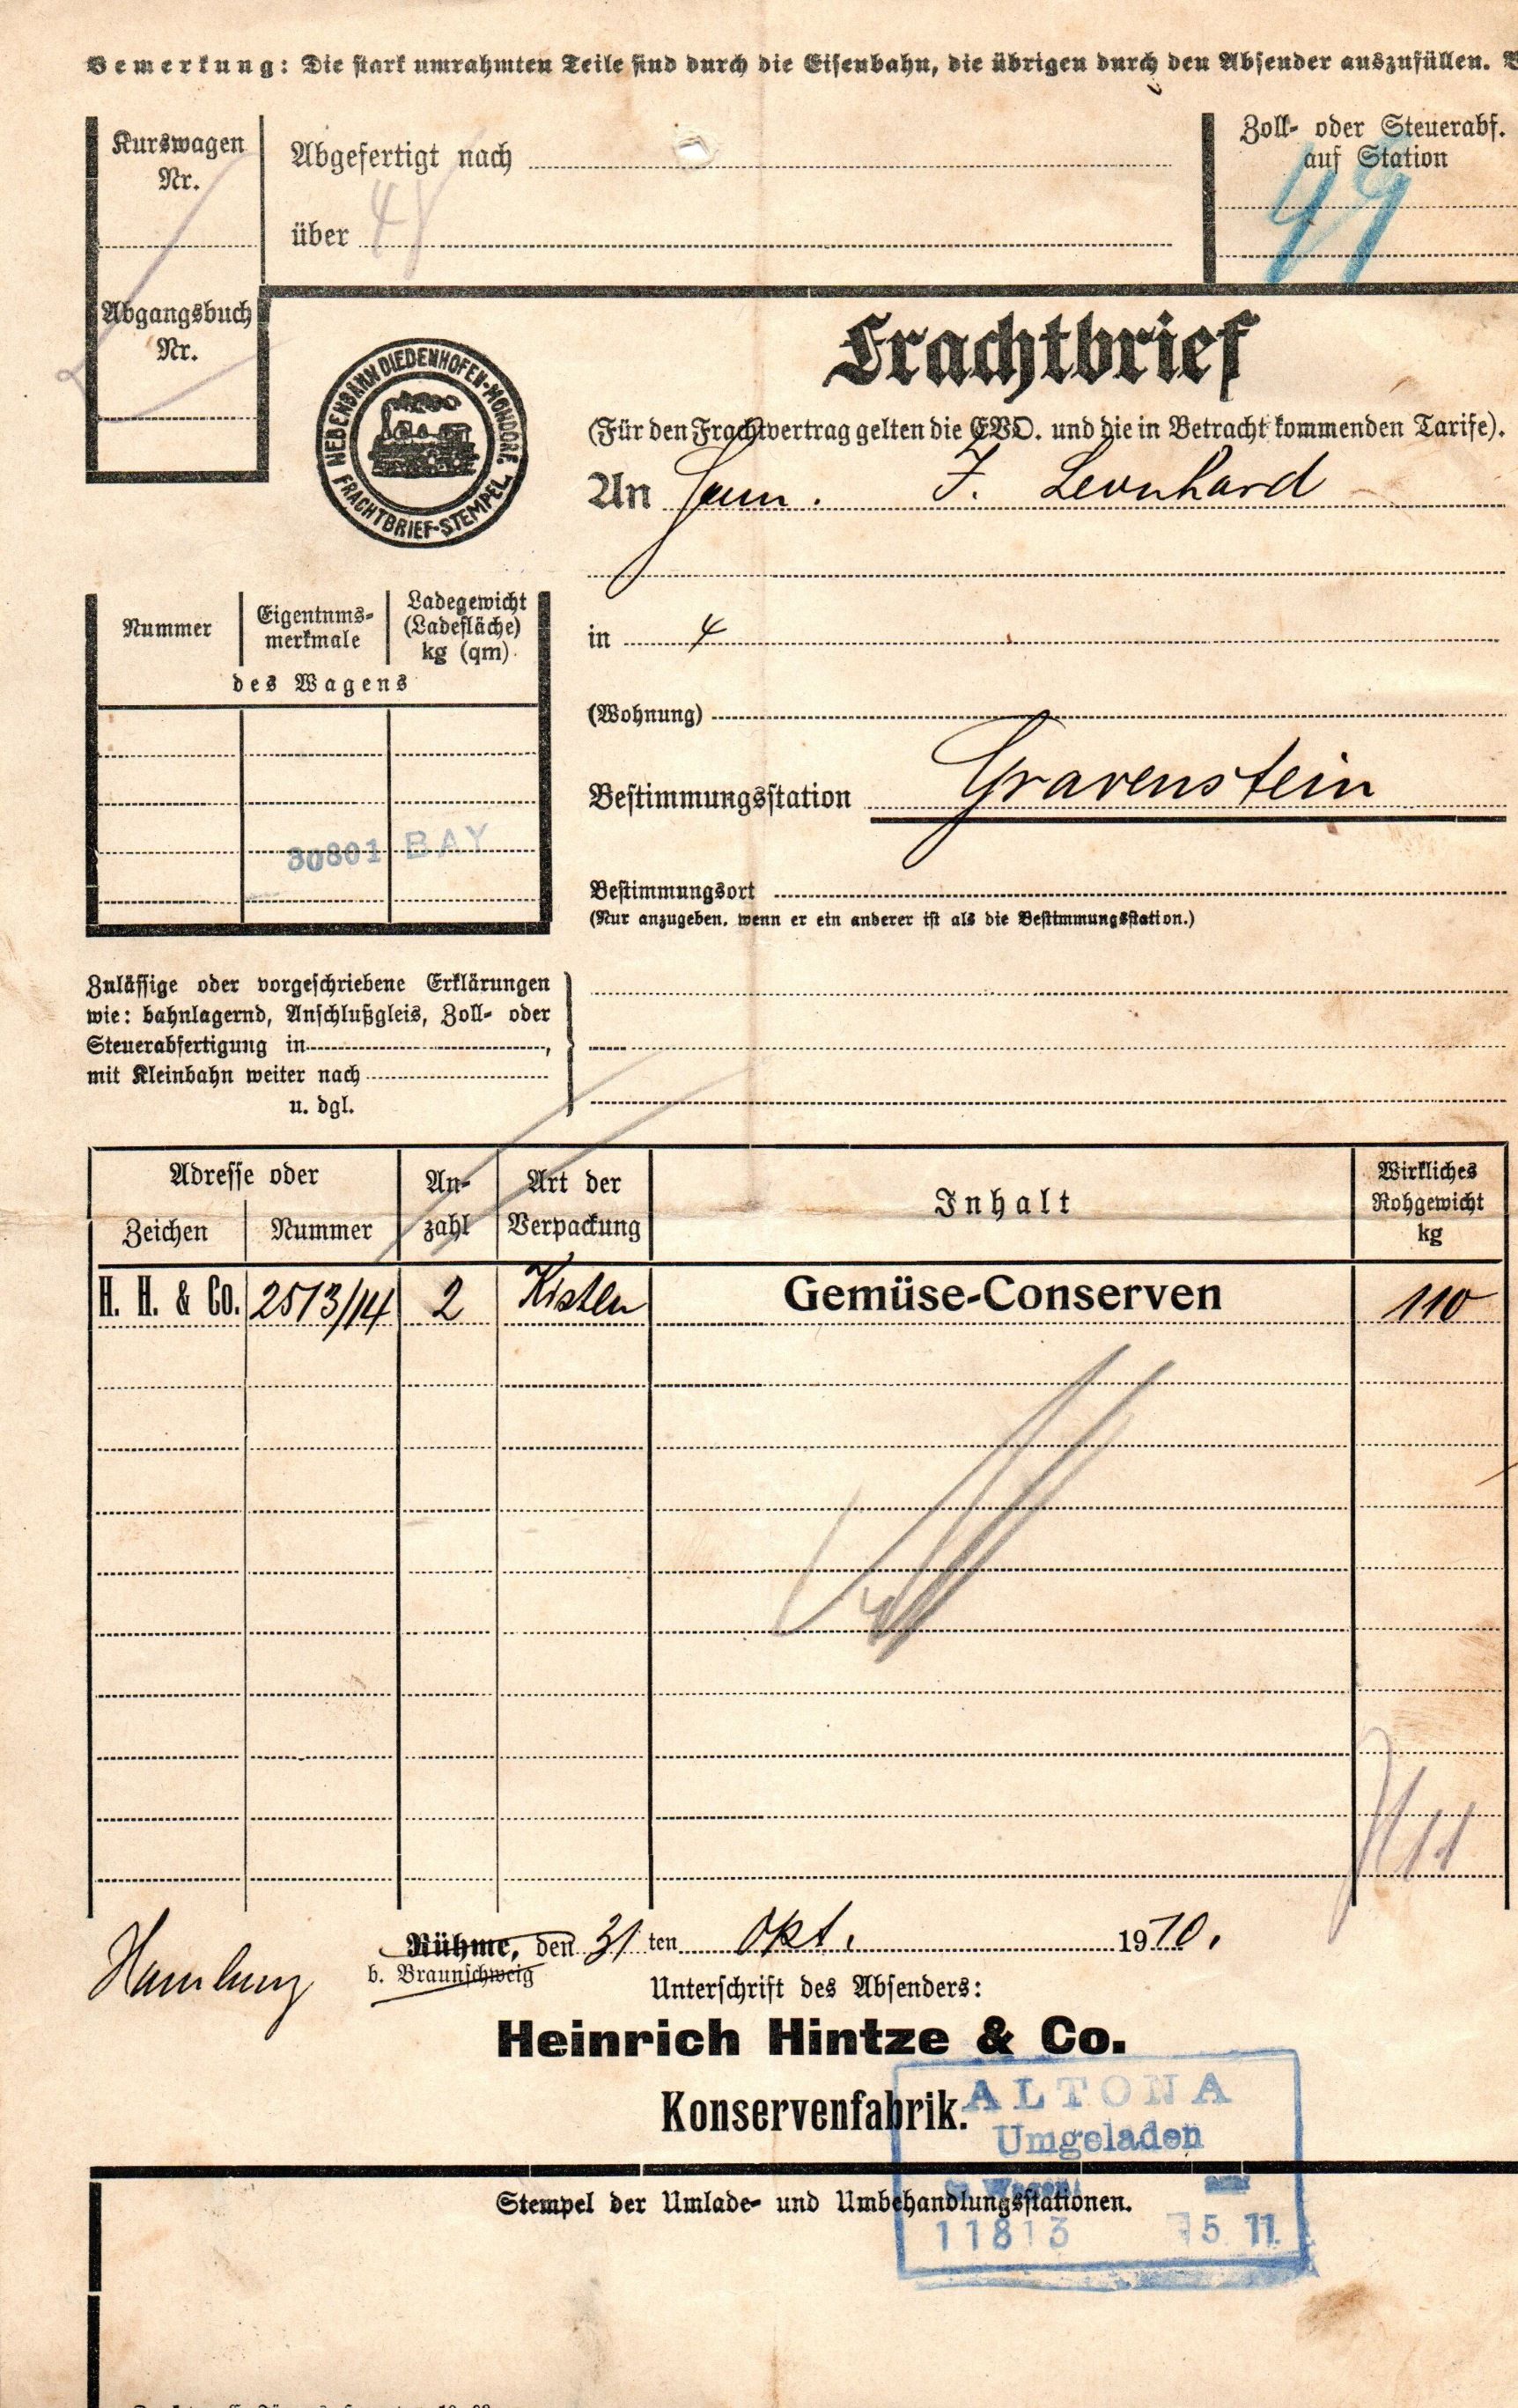 Bemerkung: Die stark umrahmten Teile sind durch die Eisenbahn, die übrigen durch den Absender auszufüllen.
Kurswagen
Nr.
Abgefertigt nach
über
Zoll- oder Steuerabf.
auf Station
49
Abgangsbuch
Nr.
NEBENBAHN DIEDENHOFEN-MONDORF.
FRACHTBRIEF-STEMPEL
Frachtbrief
(Für den Frachtvertrag gelten die EVO. und die in Betracht kommenden Tarife).
An J. Leonhard
in
(Wohnung)
Bestimmungsstation Gravenstein
Bestimmungsort
(Nur anzugeben, wenn er ein anderer ist als die Bestimmungsstation.)
Nummer
Eigentums-
merkmale
Ladegewicht
(Ladefläche)
kg (qm)
des Wagens
30801 BAY
Zulässige oder vorgeschriebene Erklärungen
wie: bahnlagernd, Anschlußgleis, Zoll- oder
Steuerabfertigung in ,
mit Kleinbahn weiter nach
u. dgl.
Adresse oder
Zeichen
Nummer
An-
zahl
Art der
Verpackung
Inhalt
Wirkliches
Rohgewicht
kg
H. H. & Co. 2513/14 2 Kisten Gemüse-Conserven 110
Hamburg
Rühme, den 31 ten Okt. 1910.
b. Braunschweig
Unterschrift des Absenders:
Heinrich Hintze & Co.
Konservenfabrik.
ALTONA
Umgeladen
Stempel der Umlade- und Umbehandlungsstationen.
11813 5 11.